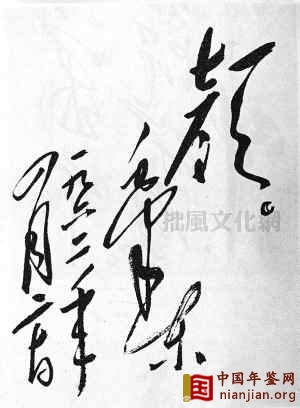 顏。
毛泽东
一九六二年
四月二十日
拙風文化網
中国年鉴网
nianjian.org